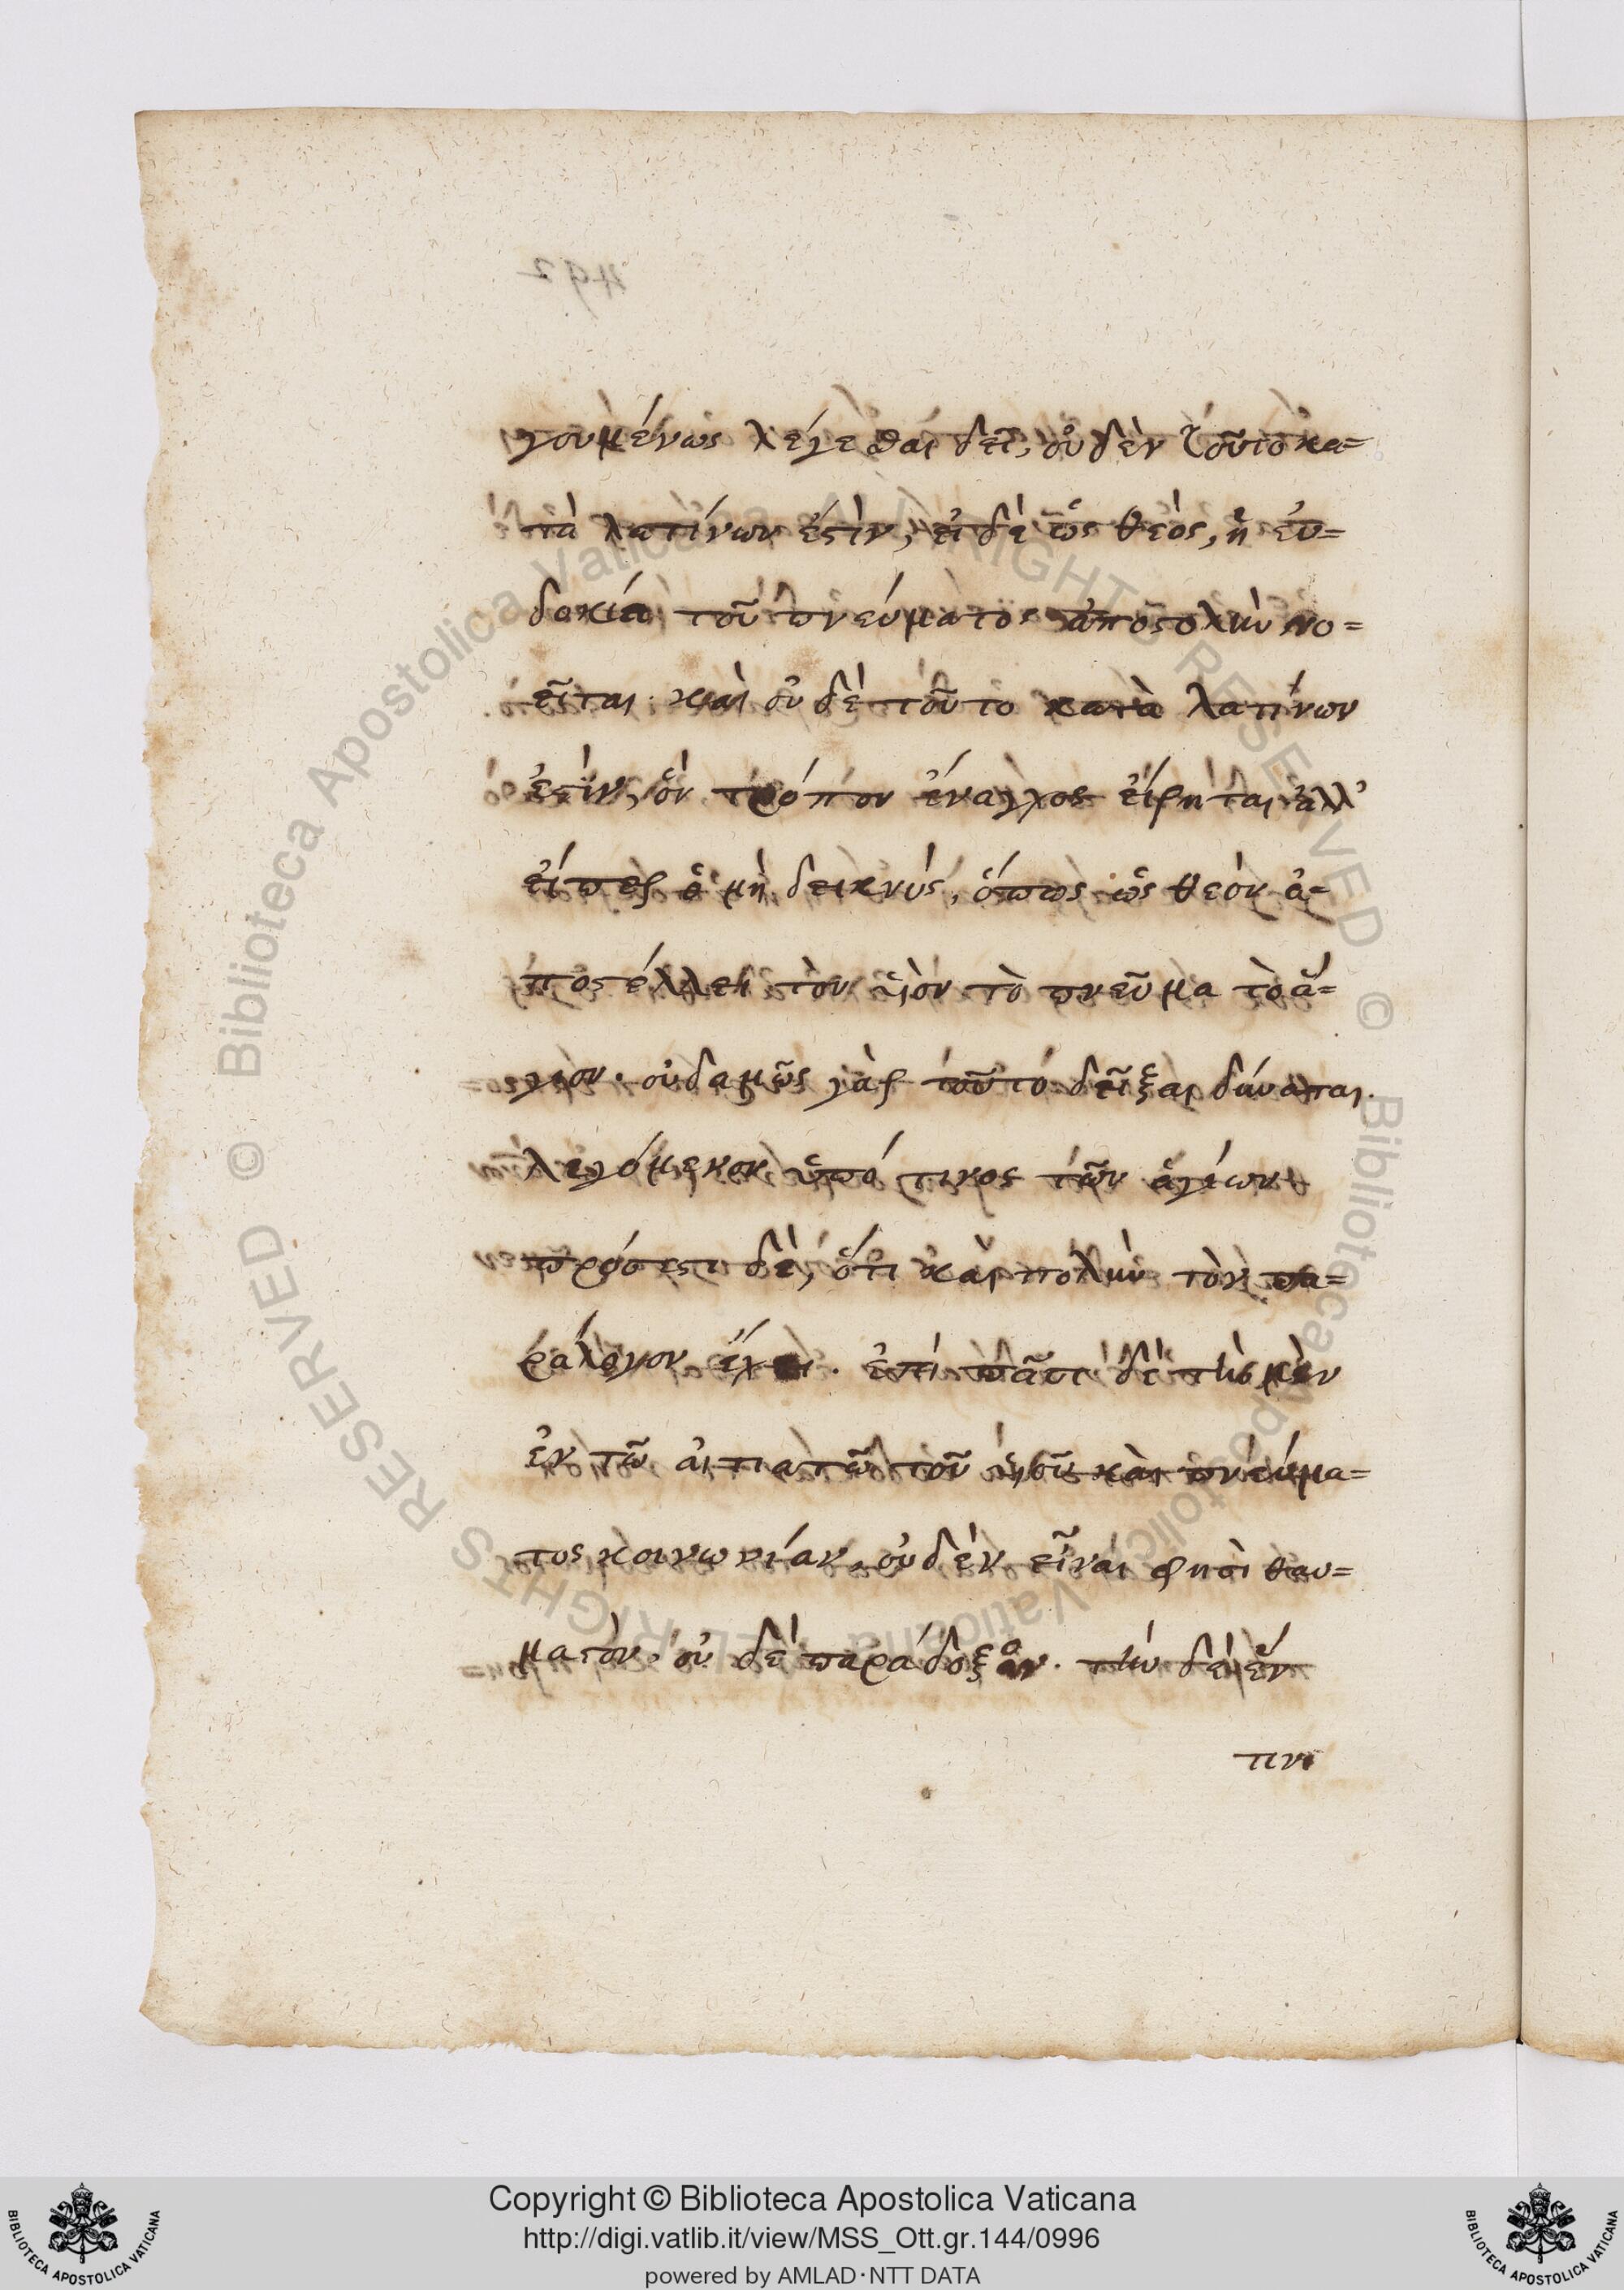 γουμένως λέγεσθαι δεῖ, οὐδὲν τοῦτο κα=
τὰ λατίνων ἐστὶν, εἰ δὲ ὡς θεὸς, ἡ εὐ=
δοκία τοῦ πνεύματος ἀποστολὴν νο=
εῖται· καὶ οὐδὲ τοῦτο κατὰ λατίνων
ἐστὶν, ὃν τρόπον ἔναγχος εἴρηται ἀλλ'
εἴπερ ὁ μὴ δεικνύς, ὅπως ὡς θεὸν ἀ=
ποστέλλει τὸν υἱὸν τὸ πνεῦμα τὸ ἅ=
γιον. οὐδαμῶς γὰρ τοῦτό δεῖξαι δύναται.
λεγόμενον ὑπό τινος τῶν ἁγίων
πρόσεστι δὲ, ὅτι καὶ πολὺν τὸν πα=
ράλογον ἔχει. ἐπὶ πᾶσι δὲ τὴν μὲν
ἐν τῶ αἰτιατῶ τοῦ υἱοῦ καὶ πνεύμα=
τος κοινωνίαν, οὐδὲν εἶναι φησὶ θαυ=
μαστὸν, οὐδὲ παράδοξον. τὴν δὲ ἐν
τινι
492
Copyright © Biblioteca Apostolica Vaticana
http://digi.vatlib.it/view/MSS_Ott.gr.144/0996
powered by AMLAD·NTT DATA
BIBLIOTECA APOSTOLICA VATICANA
BIBLIOTECA APOSTOLICA VATICANA